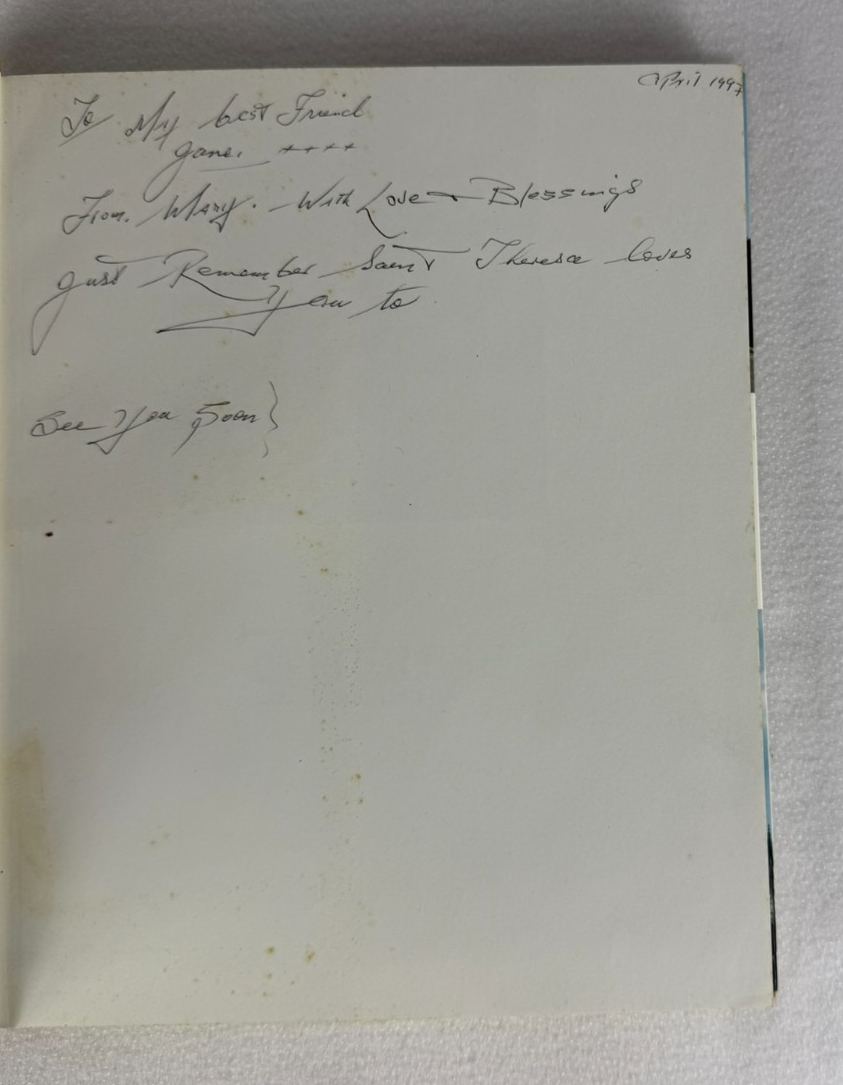 April 1997
To My best Friend
Jane. ++++
From. Mary. - With Love + Blessings
Just Remember Saint Theresa loves
You to
See You Soon}